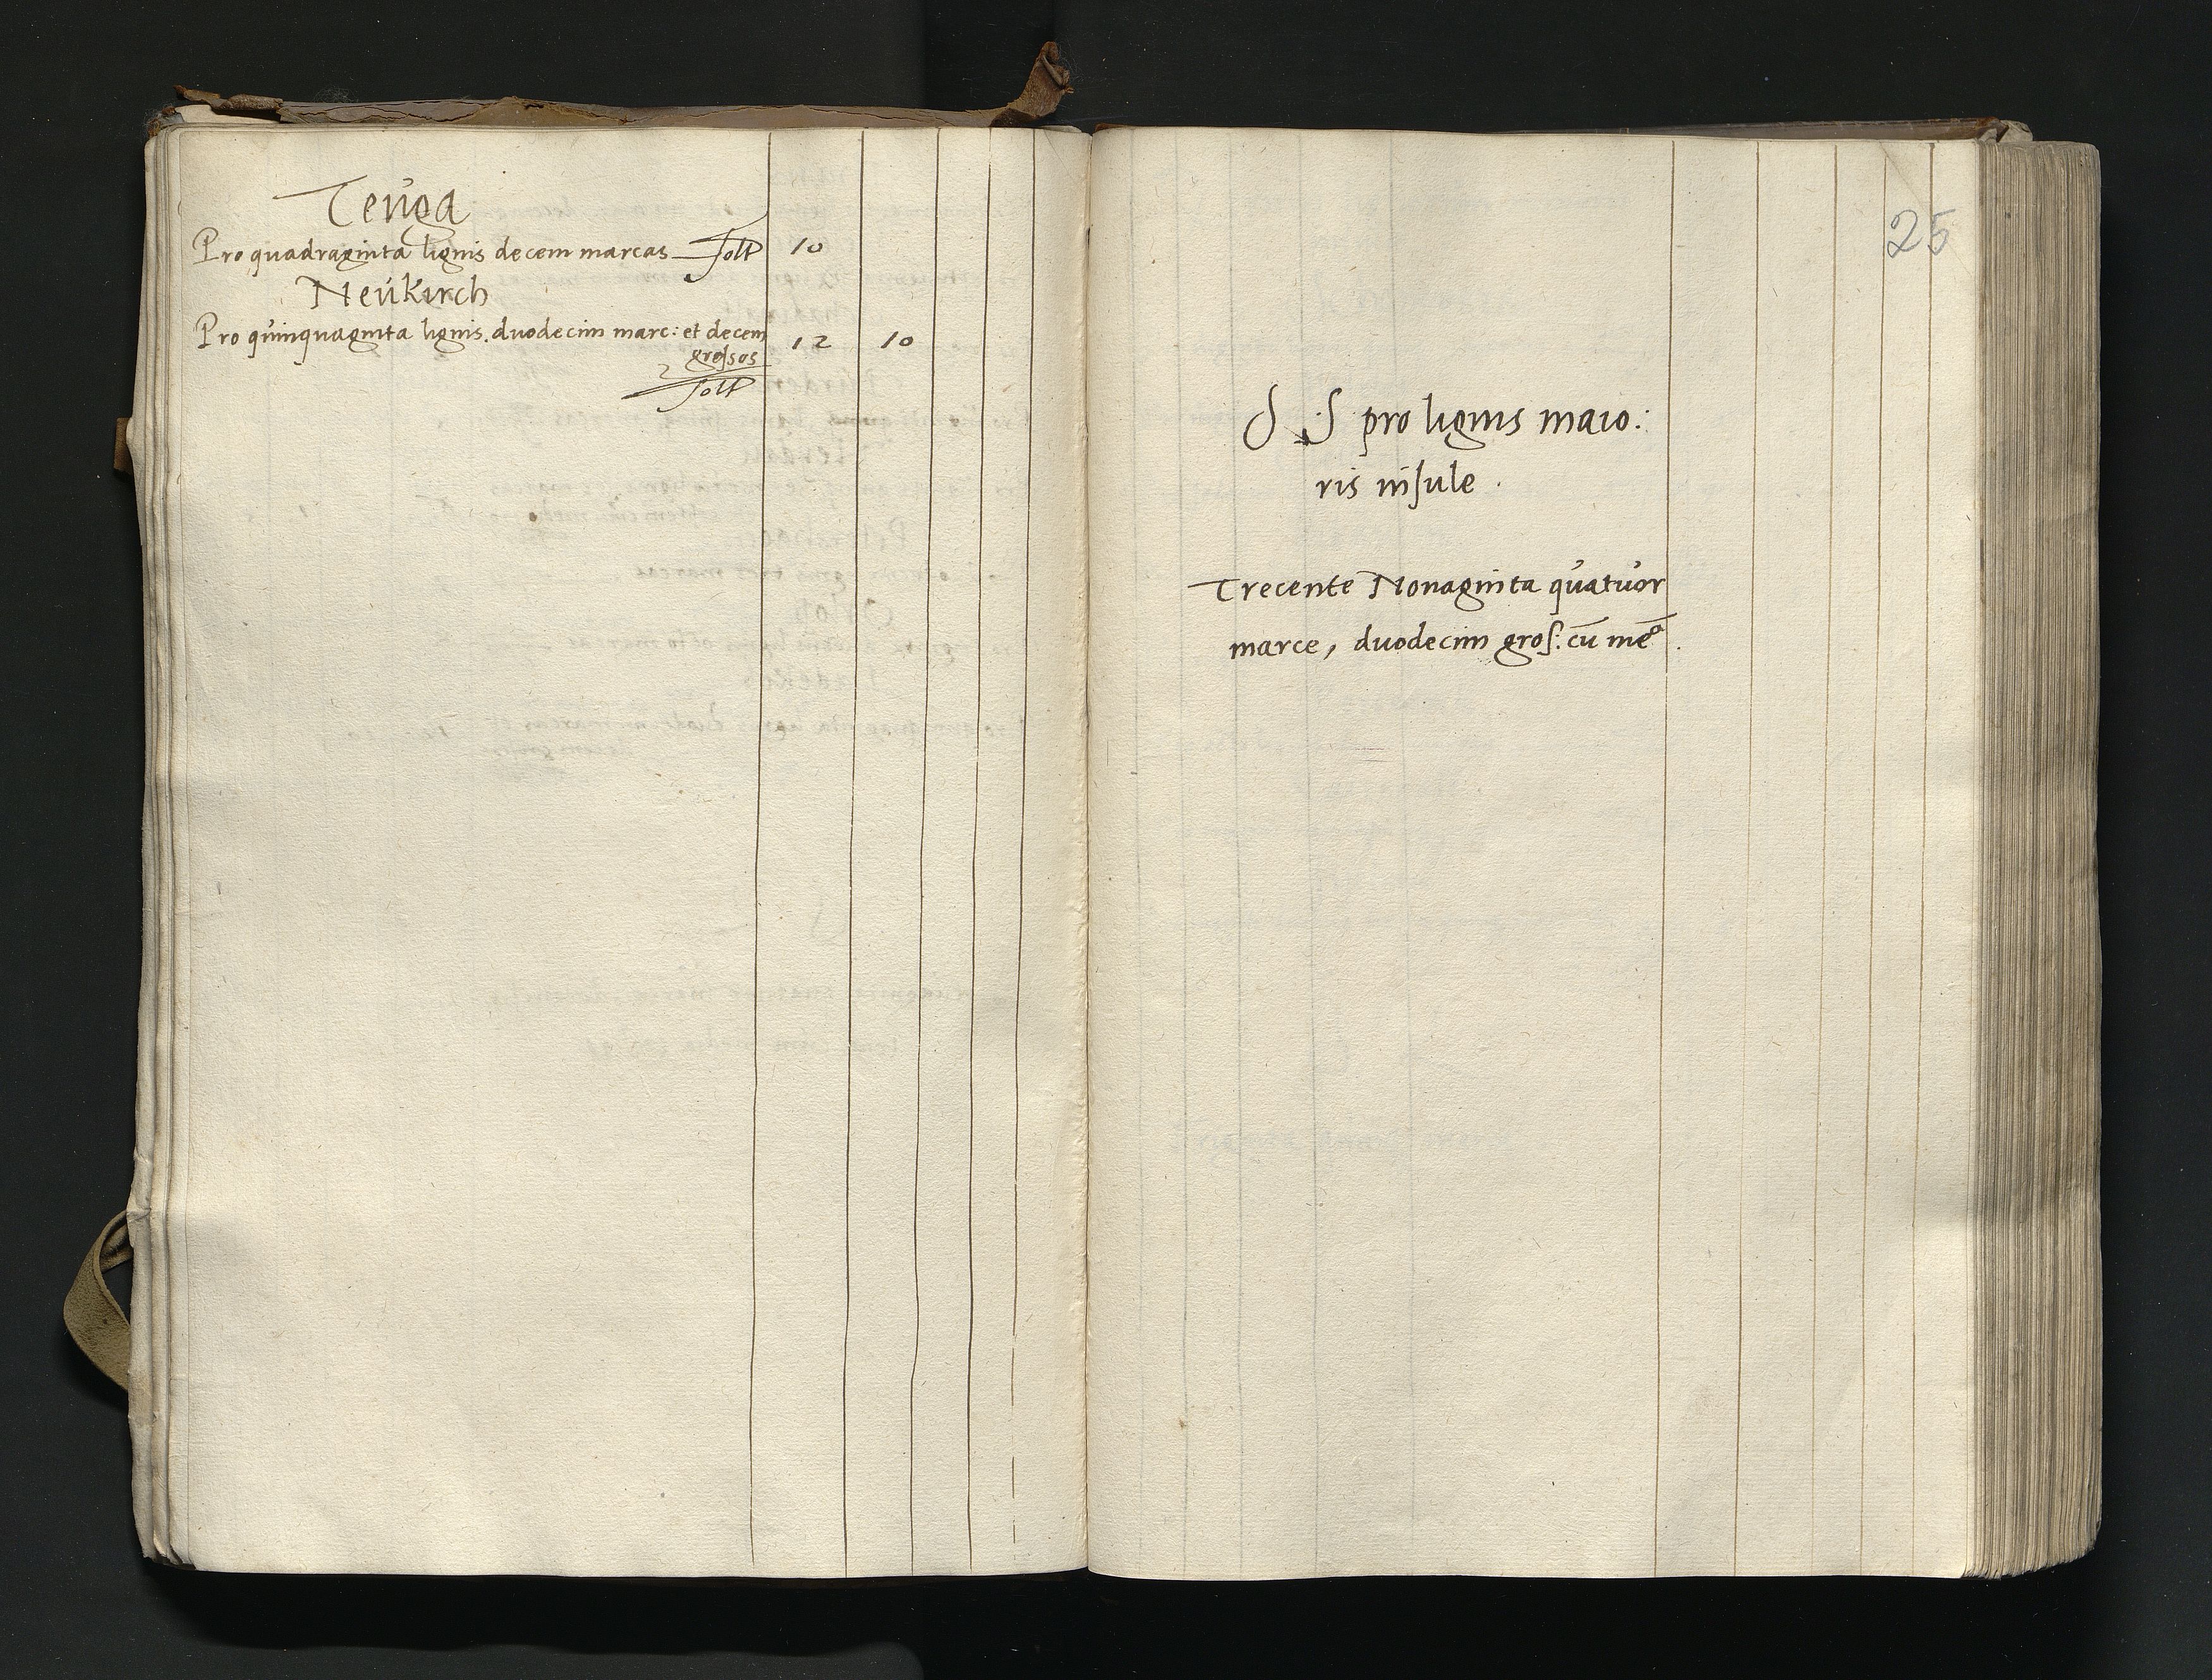 Teuga
Pro quadraginta lignis decem marcas solt 10
Neukirch
Pro quinquaginta lignis. duodecim marc: et decem 12 10
grossos
solt
25
pro lignis maio:
ris insule.
Trecente Nonaginta quatuor
marce, duodecim gros: cū me°.